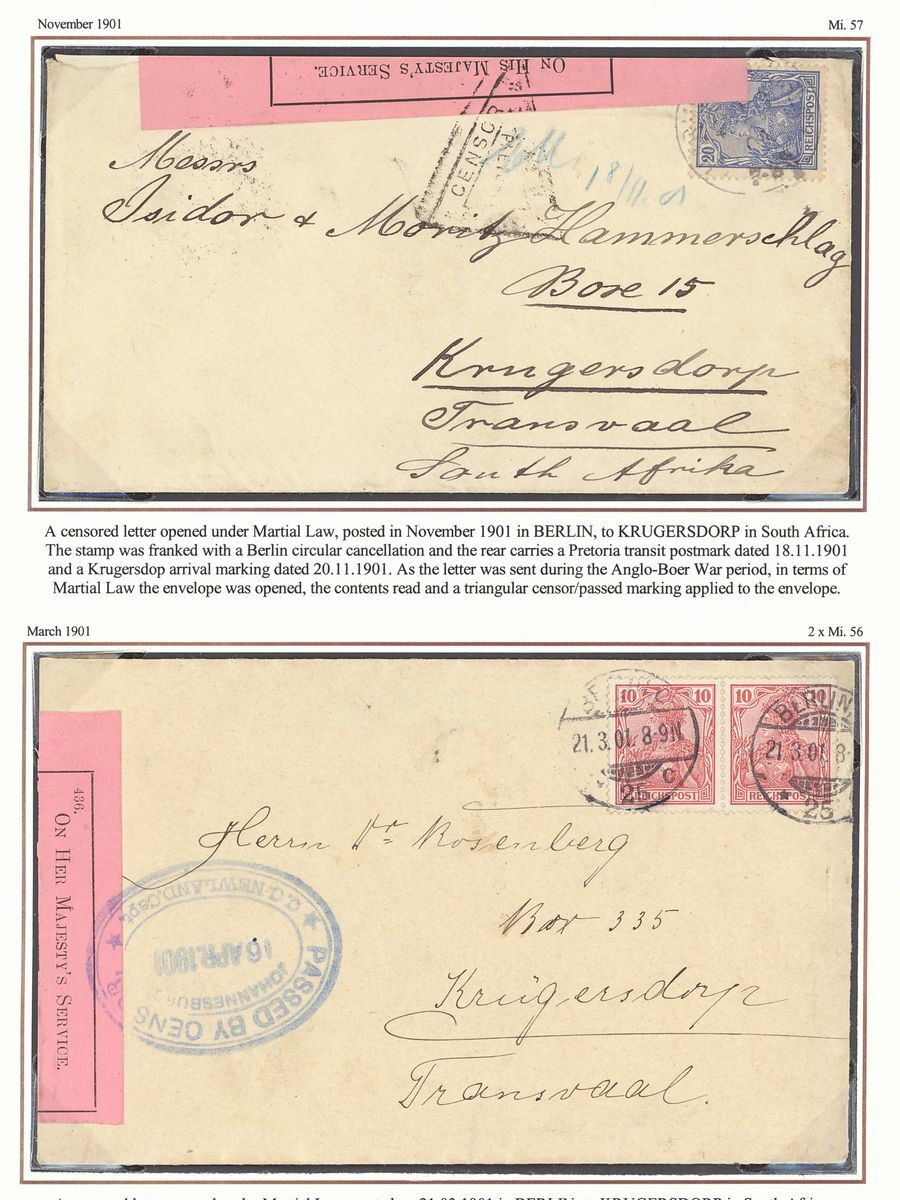 November 1901 Mi. 57
ON HIS MAJESTY'S SERVICE.
CENSOR
20 REICHSPOST
18/11.01
Messrs
Isidor & Moritz Hammerschlag
Boxe 15
Krugersdorp
Transvaal
South Afrika
A censored letter opened under Martial Law, posted in November 1901 in BERLIN, to KRUGERSDORP in South Africa.
The stamp was franked with a Berlin circular cancellation and the rear carries a Pretoria transit postmark dated 18.11.1901
and a Krugersdop arrival marking dated 20.11.1901. As the letter was sent during the Anglo-Boer War period, in terms of
Martial Law the envelope was opened, the contents read and a triangular censor/passed marking applied to the envelope.
March 1901 2 x Mi. 56
10 10 10 10
BERLIN
21.3.01. 8-9N 21.3.01 8-
C
25 25
REICHSPOST REICHSPOST
436.
ON HER MAJESTY'S SERVICE.
Herrn Dr Rosenberg
Box 335
Krügersdorp
Transvaal.
PASSED BY CENS
JOHANNESBU
16 APR. 1901
G.G. NEWLAND, Capt.